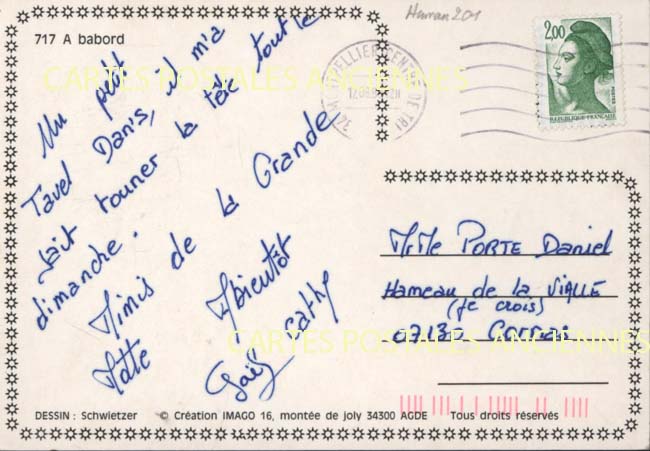 Human 201
717 A babord
2,00
POSTES
REPUBLIQUE FRANÇAISE
34 MONTPELLIER CENTRE DE TRI
CARTES POSTALES ANCIENNES
Un petit
Tavel Danis, il m'a
fait tourner la tête tout le
dimanche.
Mimis de la Grande
Matte Abientôt
Gaël Cathy
MrMe PORTE Daniel
HAMEAU DE LA VIALLE
(je crois)
0713
CARTES POSTALES ANCIENNES
DESSIN : Schwietzer © Création IMAGO 16, montée de joly 34300 AGDE Tous droits réservés